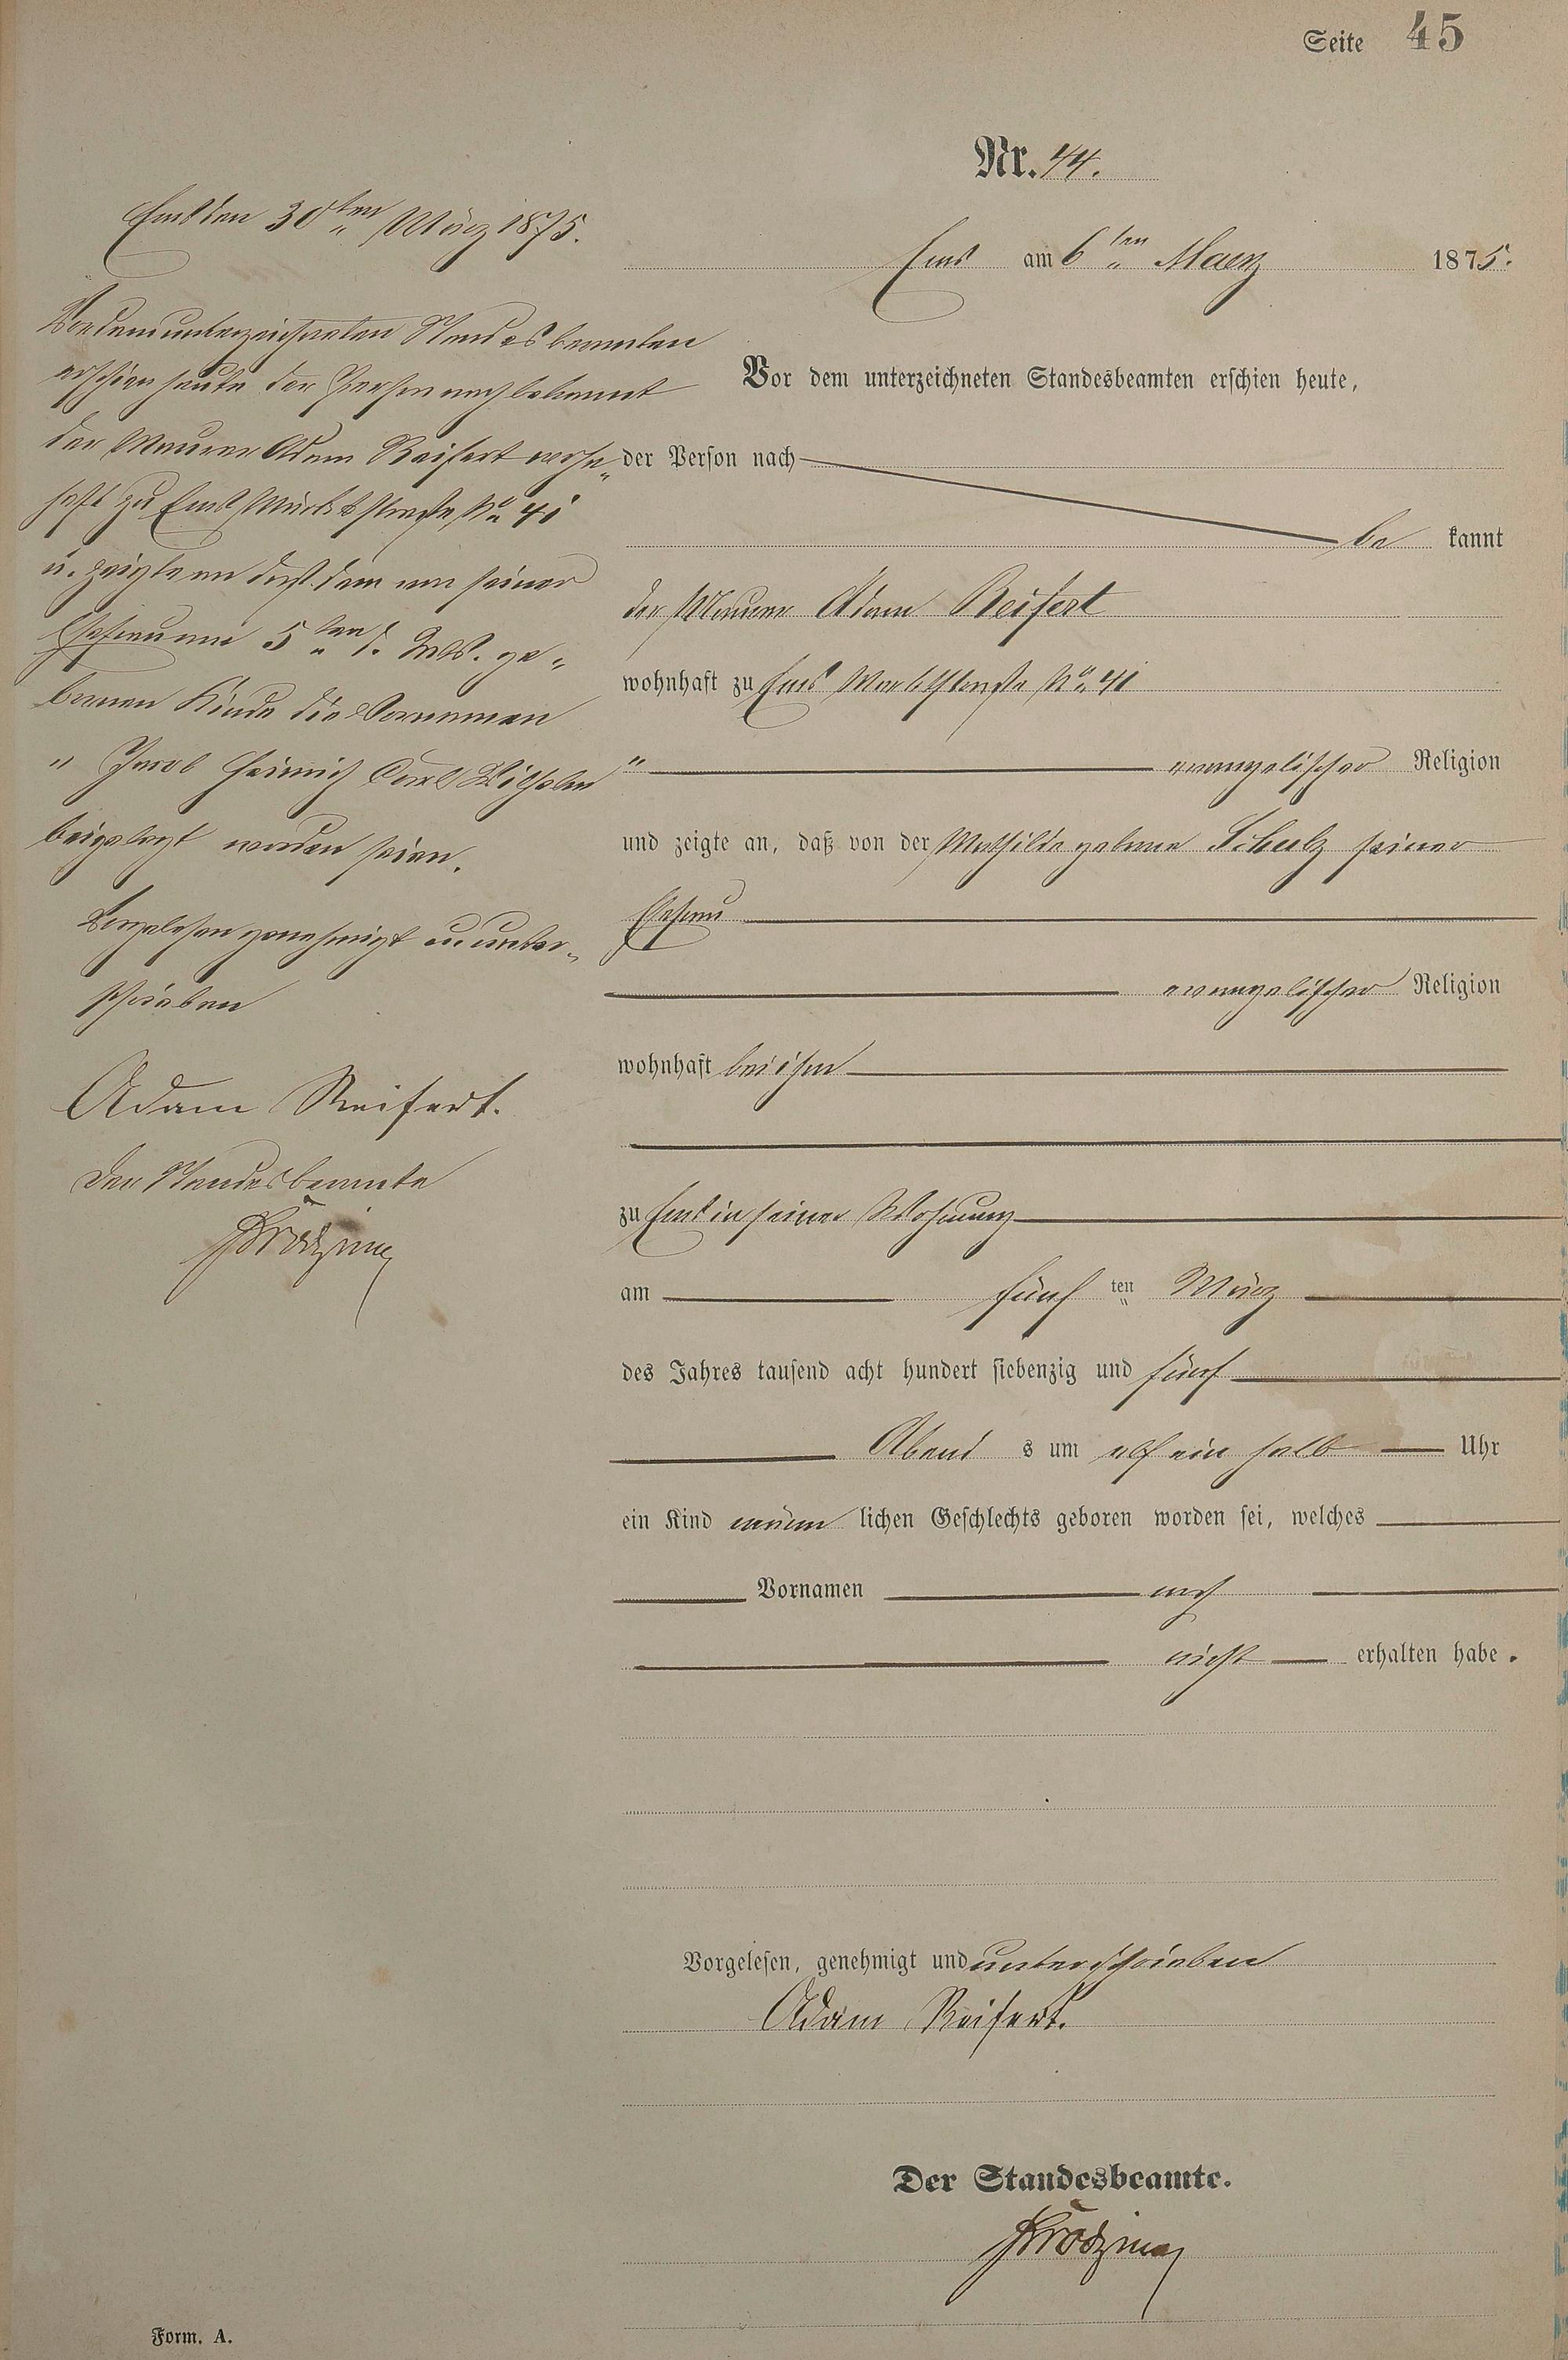 Seite 45
Nr. 44.
Ems am 6ten Maerz 1875.
Vor dem unterzeichneten Standesbeamten erschien heute,
der Person nach
be kannt
der Maurer Adam Reifert
wohnhaft zu Ems Marktstraße No 41
evangelischer Religion
und zeigte an, daß von der Mathilde geborne Schulz seiner
Ehefrau
evangelischer Religion
wohnhaft bei ihm
zu Ems in seiner Wohnung
am fünf ten März
des Jahres tausend acht hundert siebenzig und fünf
Abend s um elf ein halb Uhr
ein Kind männ lichen Geschlechts geboren worden sei, welches
Vornamen noch
nicht erhalten habe.
Vorgelesen, genehmigt und unterschrieben
Adam Reifert.
Der Standesbeamte.
Ems den 30ten März 1875.
Vor dem unterzeichneten Standesbeamten
erschien heute der Person nach bekannt
der Maurer Adam Reifert wohn-
haft zu Ems Marktstraße No 41
u. zeigte an daß dem von seiner
Ehefrau am 5ten d. Mts. ge-
bornen Kinde die Vornamen
" Jacob Heinrich Carl Wilhelm "
beigelegt worden seien.
Vorgelesen genehmigt u unter-
schrieben
Adam Reifert.
Der Standesbeamte
Form. A.